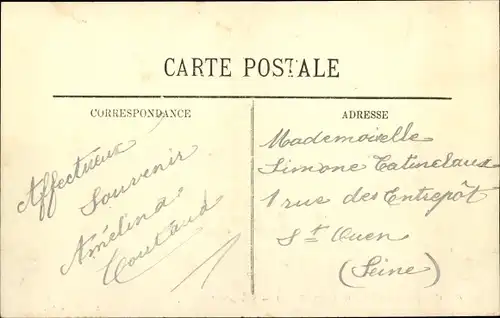 CARTE POSTALE
CORRESPONDANCE
Affectueux
Souvenir
Amélina
ADRESSE
Mademoiselle
Simone
1 rue des Entrepôt
St Ouen
(Seine)